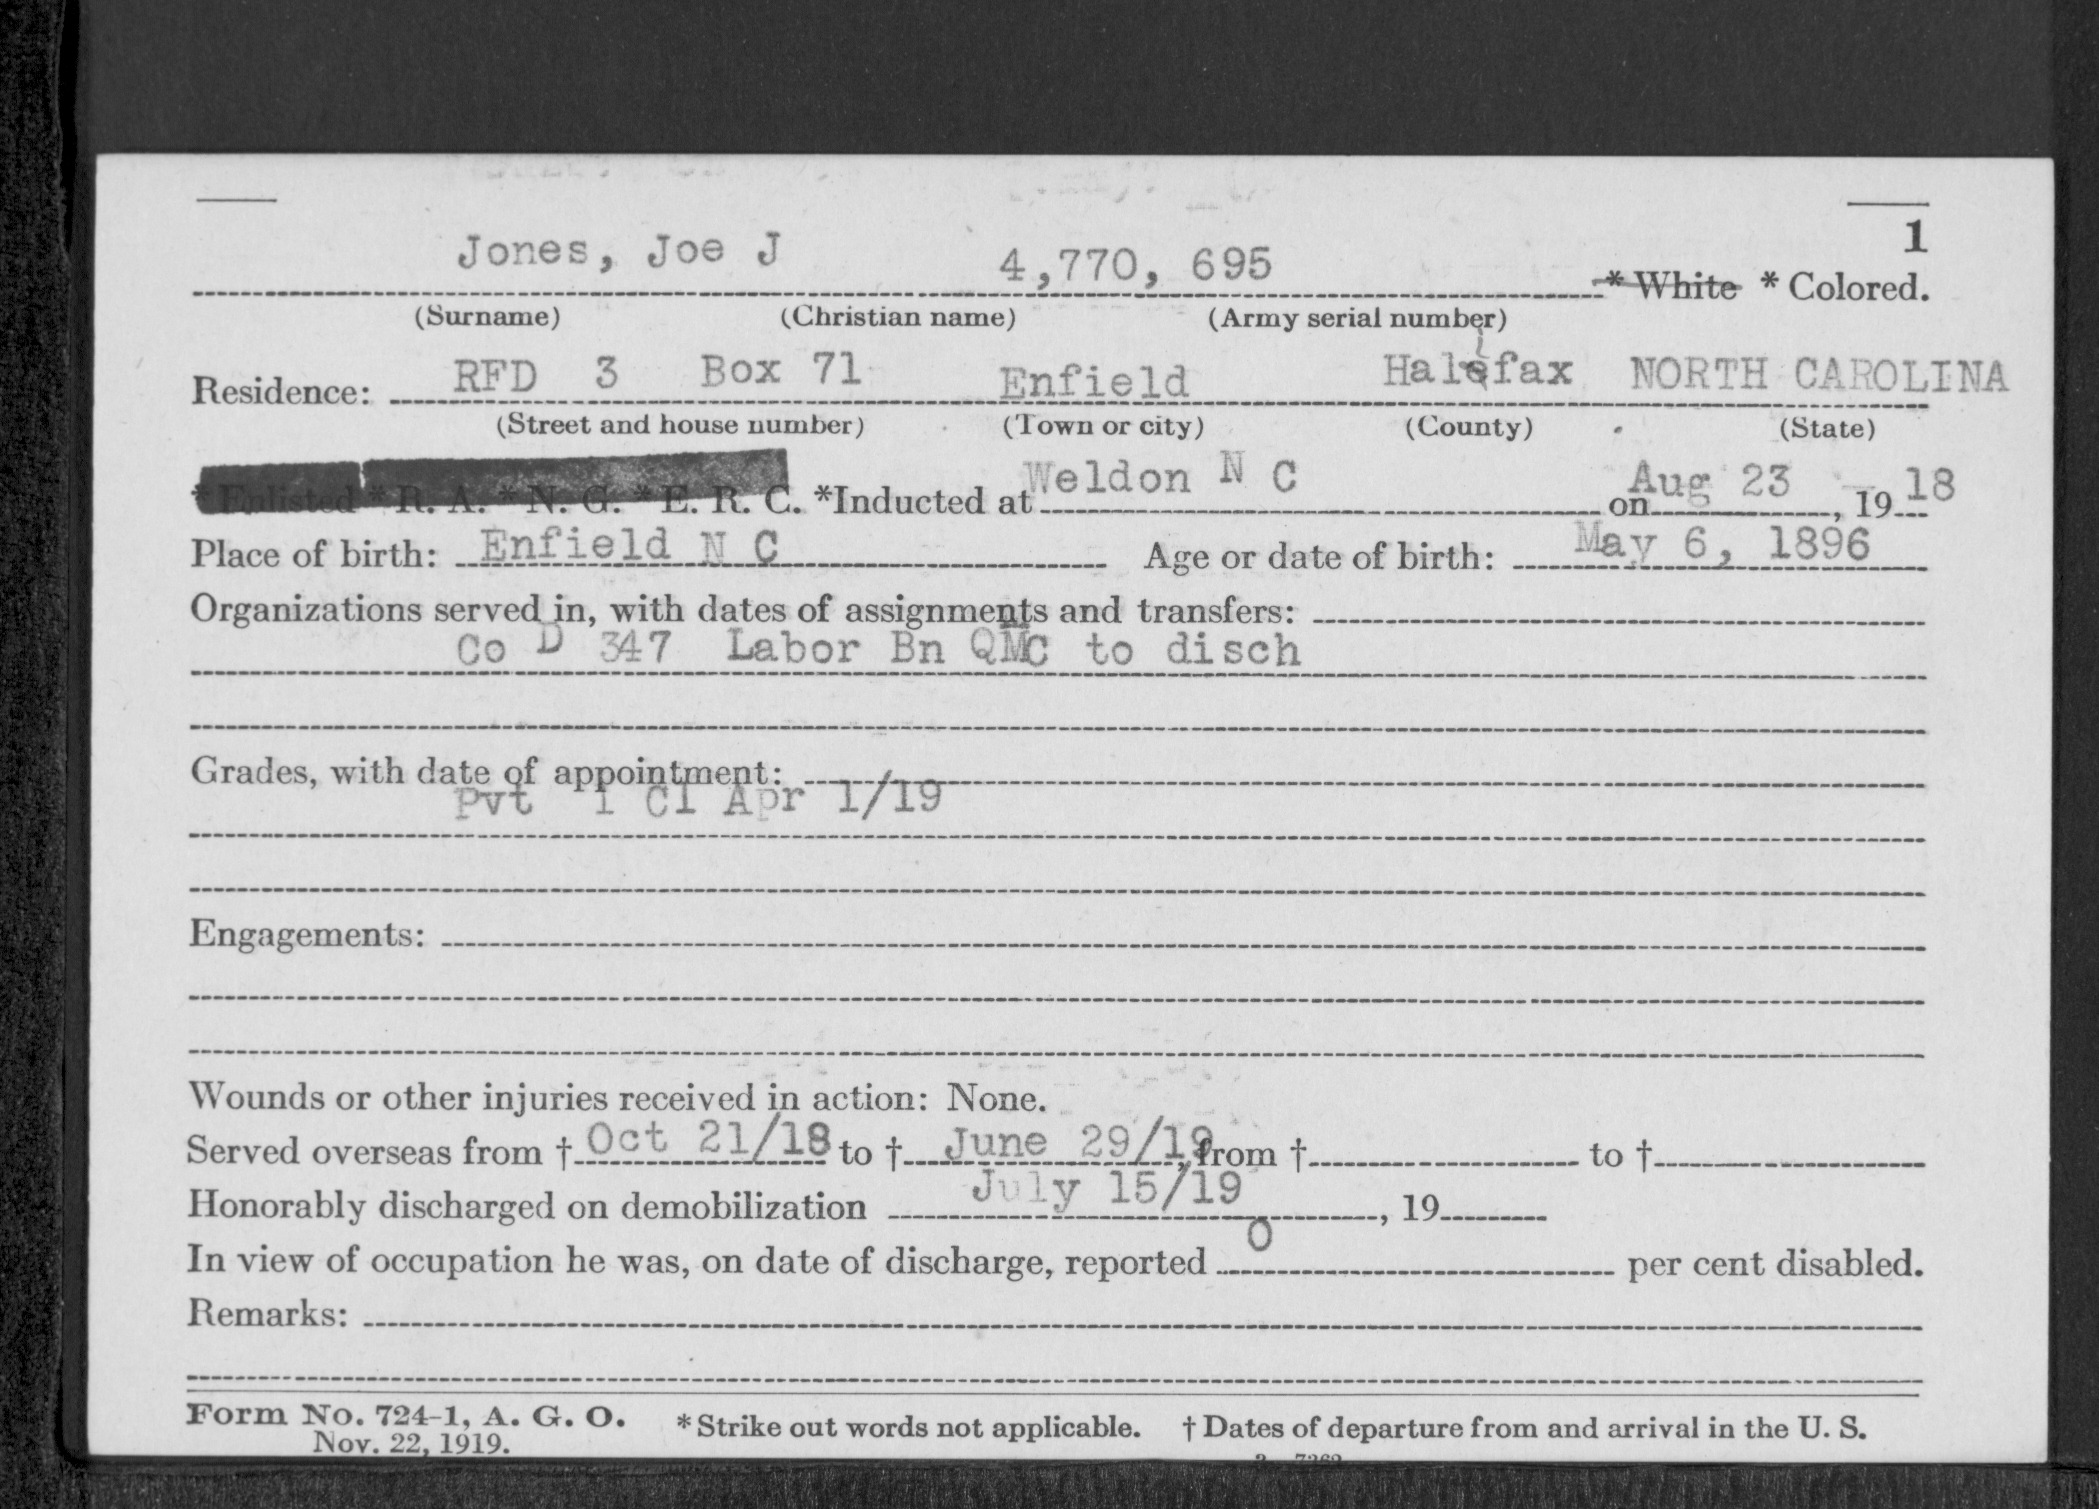 1
Jones, Joe J 4,770, 695 * White * Colored.
(Surname) (Christian name) (Army serial number)
Residence: RFD 3 Box 71 Enfield Halifax NORTH CAROLINA
(Street and house number) (Town or city) (County) (State)
* Enlisted * R. A. * N. G. * E. R. C. *Inducted at Weldon N C on Aug 23, 1918
Place of birth: Enfield N C Age or date of birth: May 6, 1896
Organizations served in, with dates of assignments and transfers:
Co D 347 Labor Bn QMC to disch
Grades, with date of appointment:
Pvt 1 Cl Apr 1/19
Engagements:
Wounds or other injuries received in action: None.
Served overseas from † Oct 21/18 to † June 29/19, from † to †
Honorably discharged on demobilization July 15/19, 19
In view of occupation he was, on date of discharge, reported 0 per cent disabled.
Remarks:
Form No. 724-1, A. G. O. * Strike out words not applicable. † Dates of departure from and arrival in the U. S.
Nov. 22, 1919.